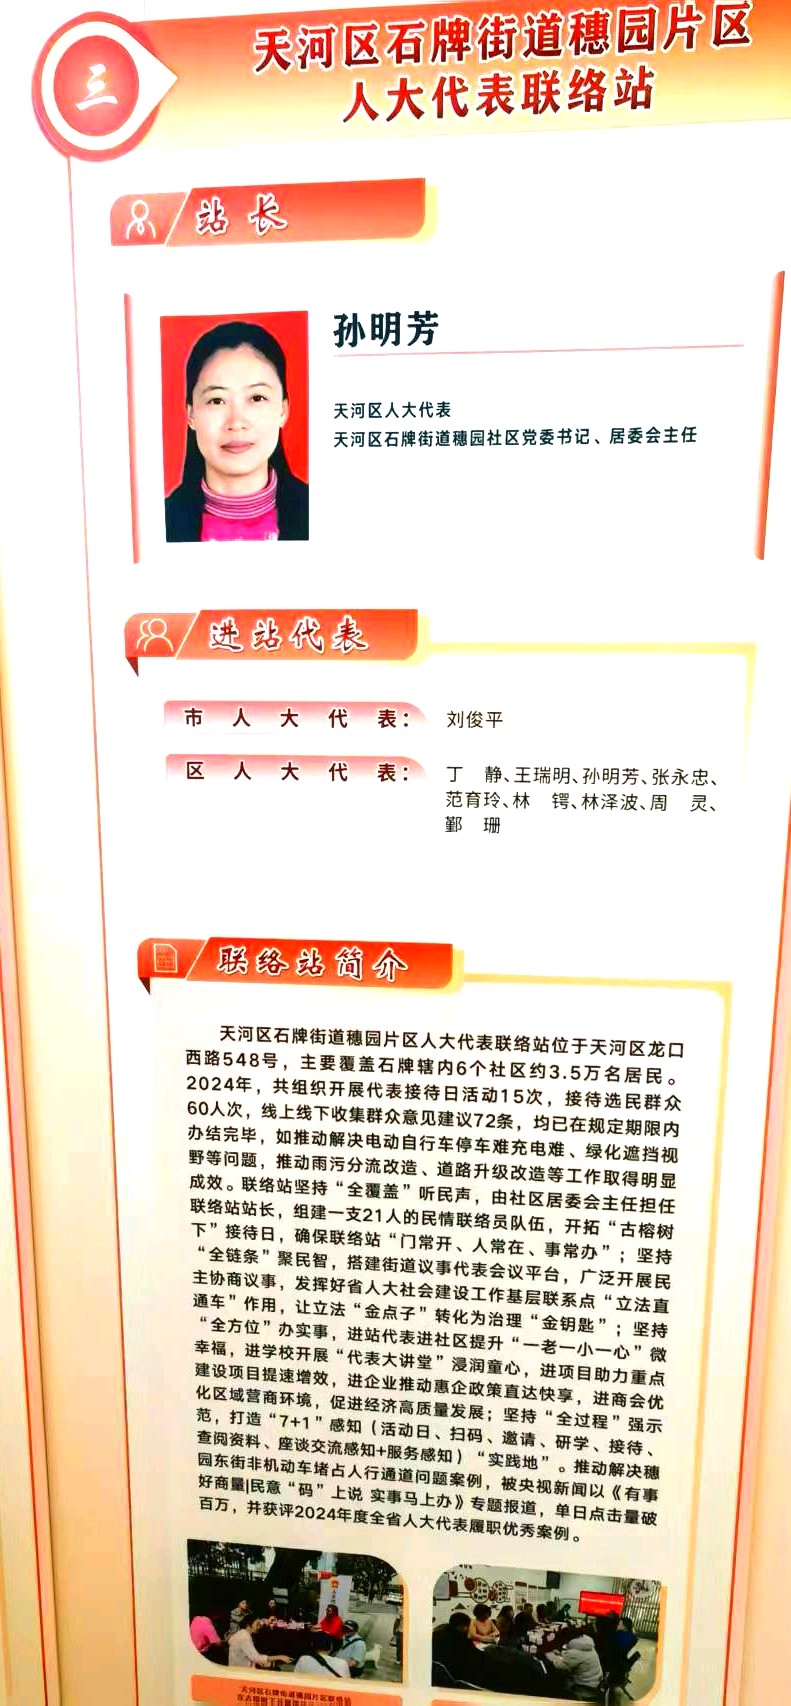 三
天河区石牌街道穗园片区
人大代表联络站
站 长
孙明芳
天河区人大代表
天河区石牌街道穗园社区党委书记、居委会主任
进站代表
市人大代表： 刘俊平
区人大代表： 丁 静、王瑞明、孙明芳、张永忠、
范育玲、林 锷、林泽波、周 灵、
鄞 珊
联络站简介
天河区石牌街道穗园片区人大代表联络站位于天河区龙口
西路548号，主要覆盖石牌辖内6个社区约3.5万名居民。
2024年，共组织开展代表接待日活动15次，接待选民群众
60人次，线上线下收集群众意见建议72条，均已在规定期限内
办结完毕，如推动解决电动自行车停车难充电难、绿化遮挡视
野等问题，推动雨污分流改造、道路升级改造等工作取得明显
成效。联络站坚持“全覆盖”听民声，由社区居委会主任担任
联络站站长，组建一支21人的民情联络员队伍，开拓“古榕树
下”接待日，确保联络站“门常开、人常在、事常办”；坚持
“全链条”聚民智，搭建街道议事代表会议平台，广泛开展民
主协商议事，发挥好省人大社会建设工作基层联系点“立法直
通车”作用，让立法“金点子”转化为治理“金钥匙”；坚持
“全方位”办实事，进站代表进社区提升“一老一小一心”微
幸福，进学校开展“代表大讲堂”浸润童心，进项目助力重点
建设项目提速增效，进企业推动惠企政策直达快享，进商会优
化区域营商环境，促进经济高质量发展；坚持“全过程”强示
范，打造“7+1”感知（活动日、扫码、邀请、研学、接待、
查阅资料、座谈交流感知+服务感知）“实践地”。推动解决穗
园东街非机动车堵占人行通道问题案例，被央视新闻以《有事
好商量|民意“码”上说 实事马上办》专题报道，单日点击量破
百万，并获评2024年度全省人大代表履职优秀案例。
天河区石牌街道穗园片区联络站